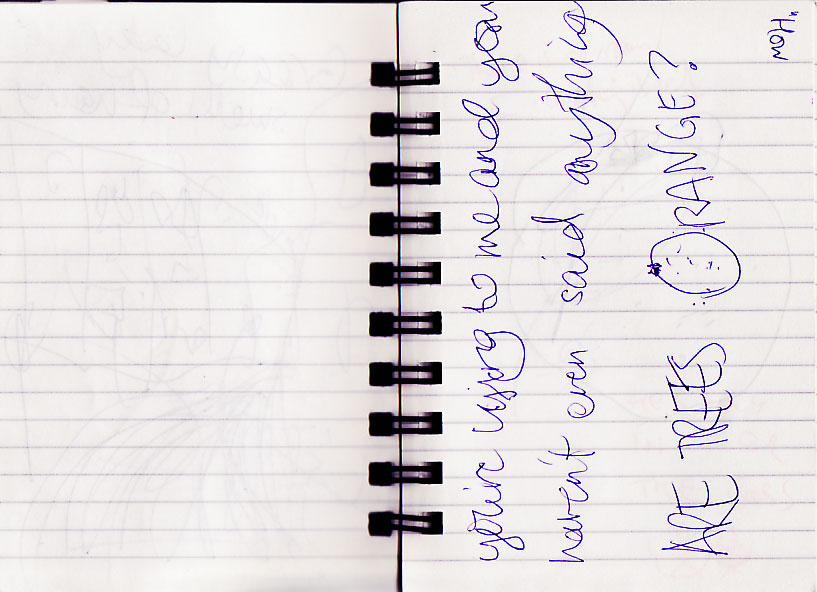 you're lying to me and you
haven't even said anything
ARE TREES ORANGE?
"How